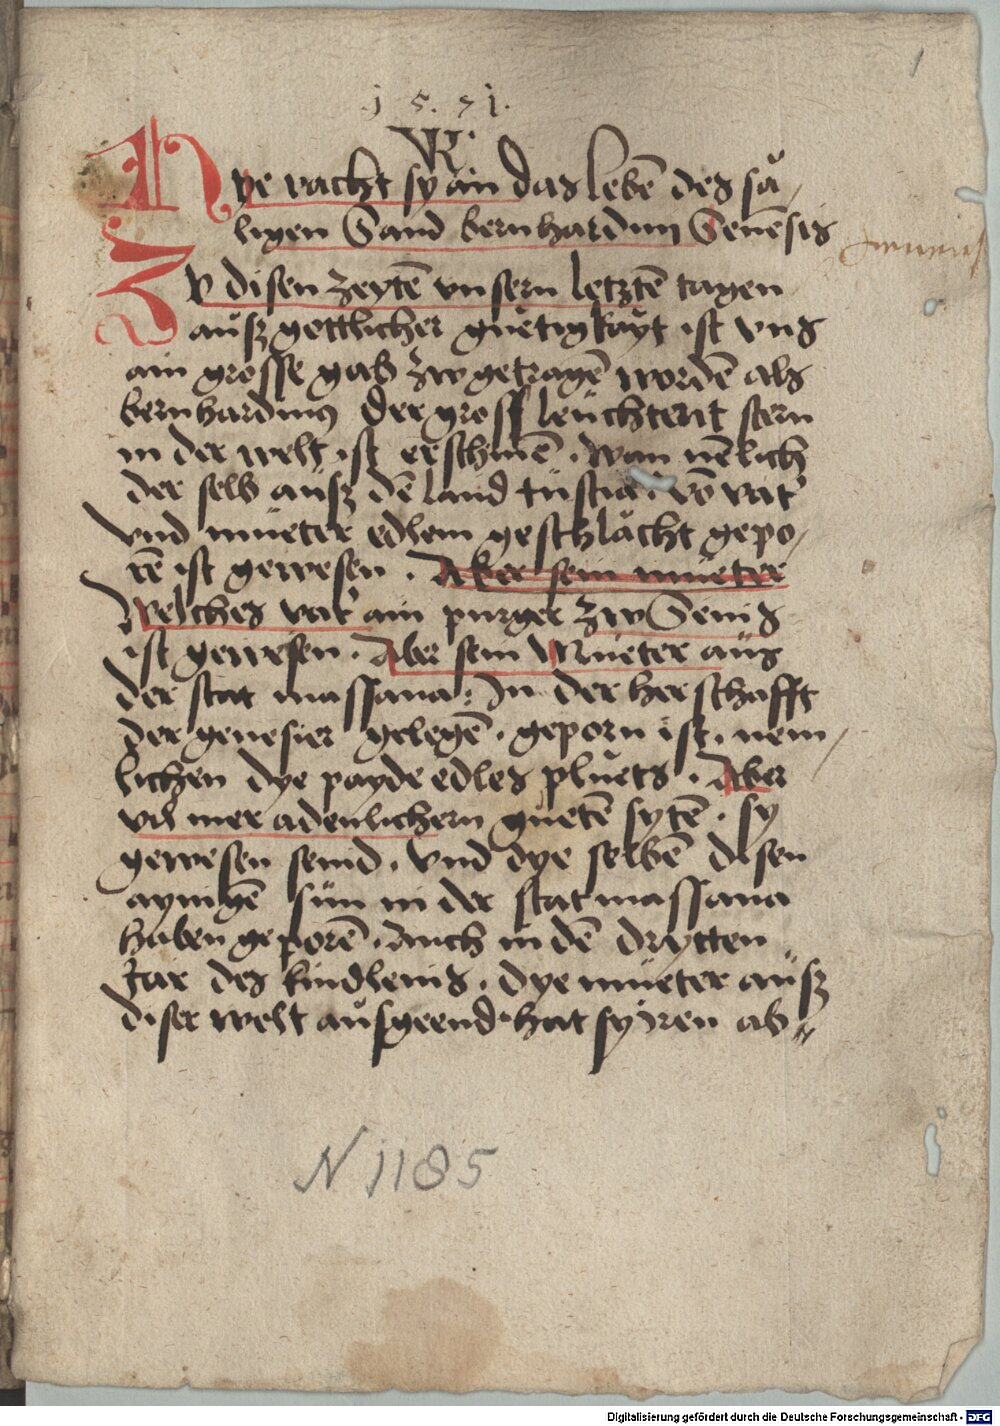 1
1 5. 7 1.
VK
Hye vacht sy ain das lebē des sä/
ligen Sand bernhardini Senēsis
Zv disen zeytē vnsern letztē tagen
auſz gettlicher güetigkayt ist vns
ain grosse gab zwgetragē wordē als
bernhardinus der gross leüchtent stern
in der welt ist erschinē. wan nēlich
der selb auſz dē land tuscia. vō vat'
vnd müeter edlem geschlächt gepo/
rē ist gewesen. Aber sein müeter
Welches vat' ain purger zw Senis
ist gewesen. Aber sein Müeter aus
der stat massana: In der herschafft
der genesier gelegē. geporn ist. nem/
lichen dye payde edles pluets. Aber
vil mer adenlichern guetē sytē. sy
gewesen seind. Vnd dye selbē disen
aynigē sun in der stat massana
haben geporē. Auch in dē drytten
Jar des kindleins. dye müeter auſz
diser welt auſgeend. hat sy iren ab//
N 1185
Digitalisierung gefördert durch die Deutsche Forschungsgemeinschaft - DFG